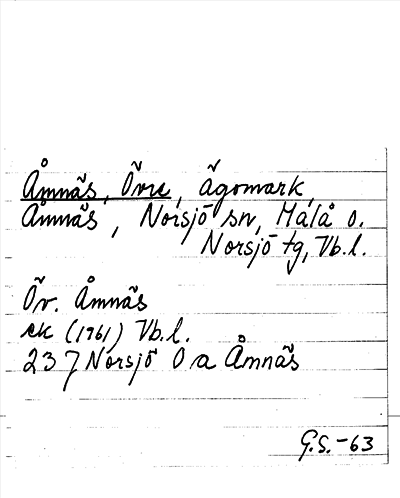 Åmnäs, Övre, ägomark,
Åmnäs, Norsjö sn, Malå o.
Norsjö tg, Vb.l.
Öv. Åmnäs
ek (1961) Vb.l.
23 7 Norsjö 0 a Åmnäs
G.S.-63